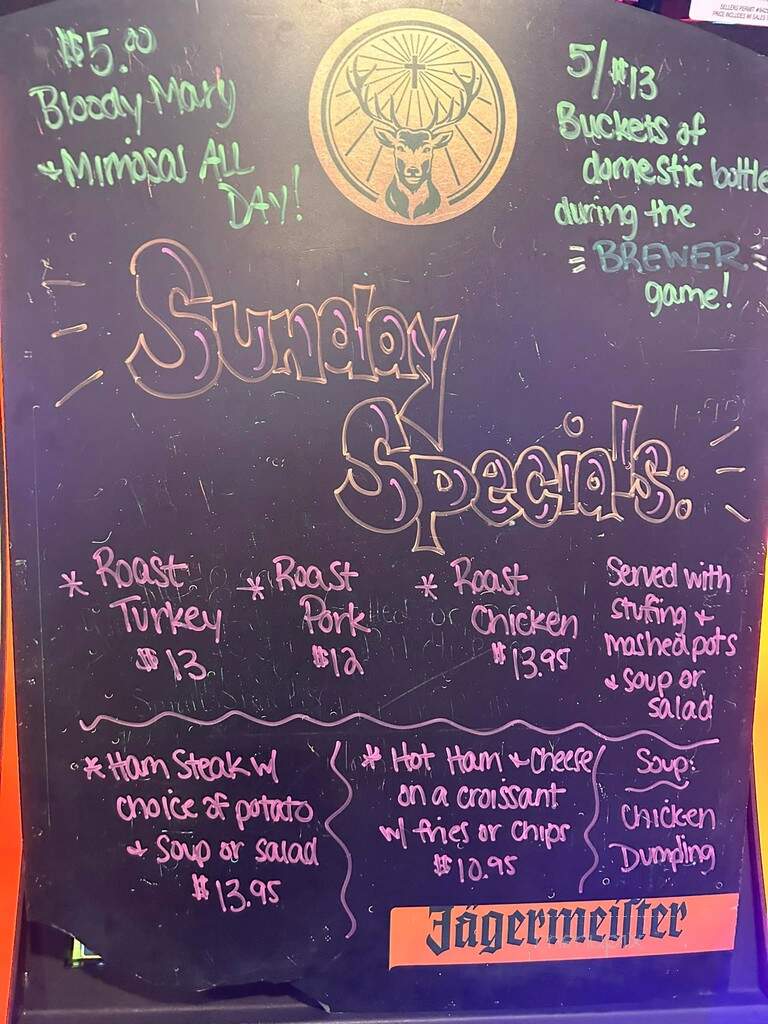 $5.00
Bloody Mary
+ Mimosas ALL
DAY!
5/$13
Buckets of
domestic bottle
during the
BREWER
game!
Sunday
Specials:
* Roast
Turkey
$13
* Roast
Pork
$12
* Roast
Chicken
$13.95
Served with
stuffing +
mashed pots
+ soup or
salad
* Ham Steak w/
choice of potato
+ soup or salad
$13.95
* Hot Ham + cheese
on a croissant
w/ fries or chips
$10.95
Soup:
Chicken
Dumpling
Jägermeister